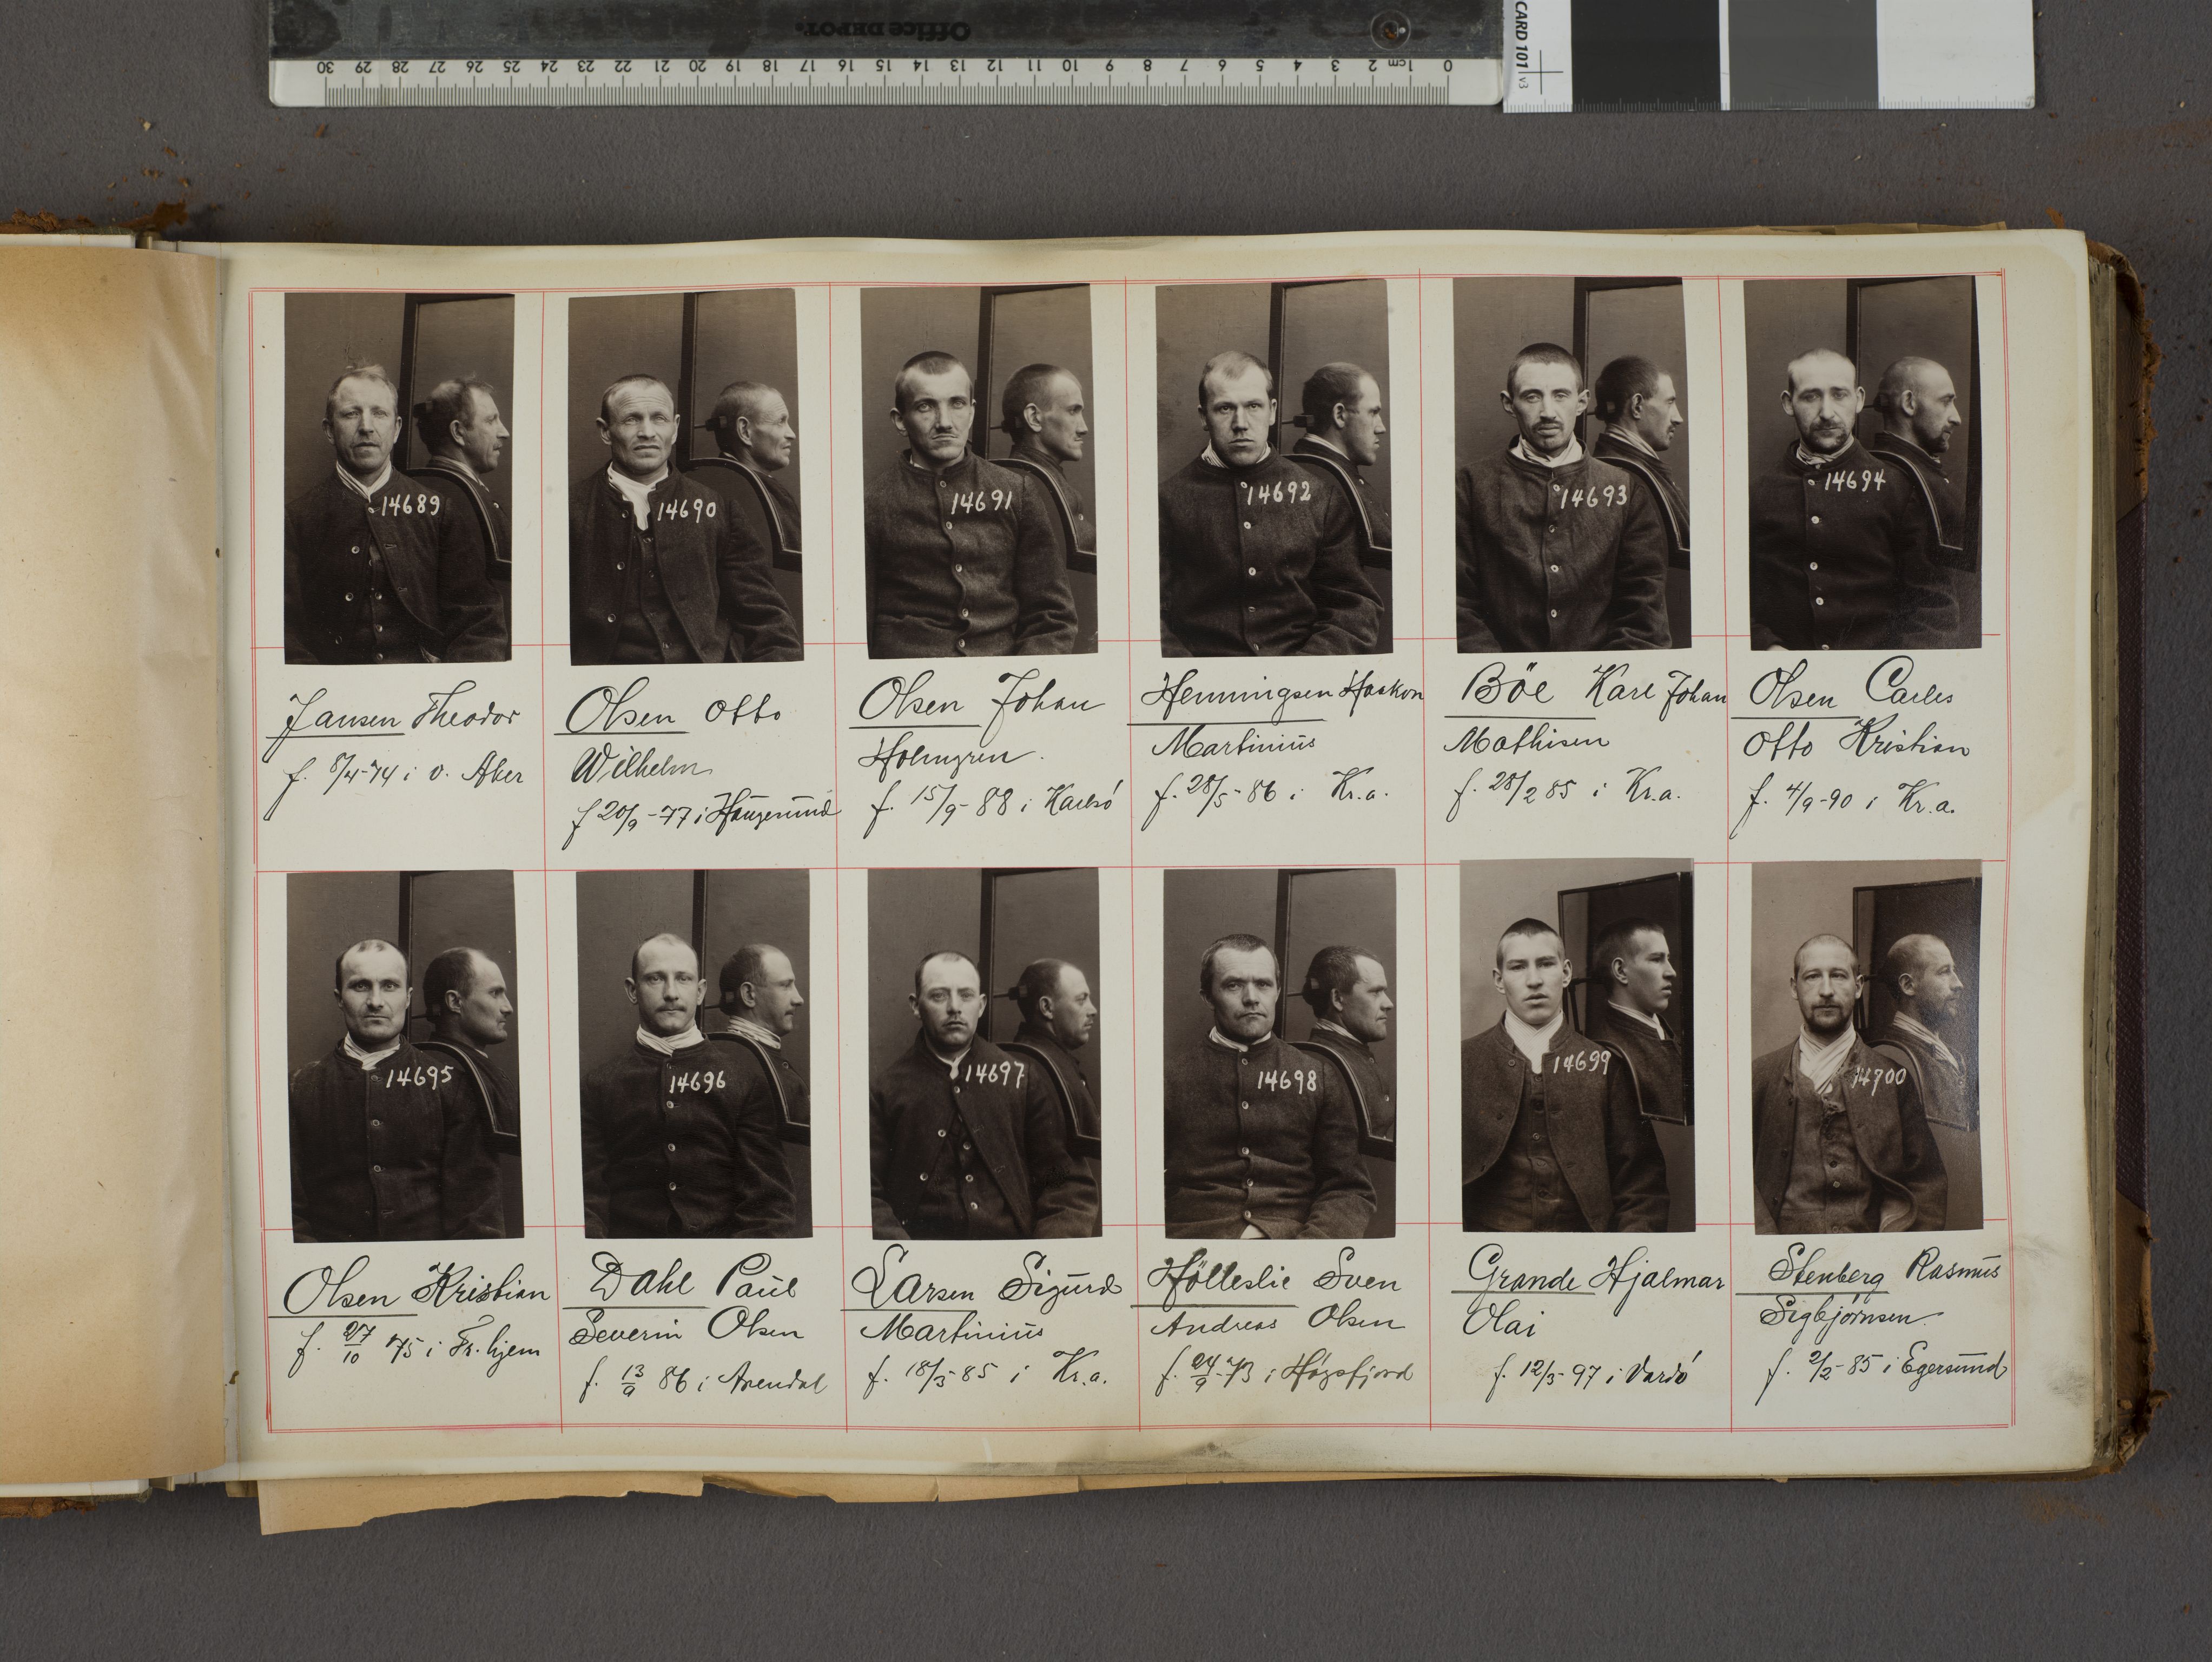 Office DEPOT.
30 29 28 27 26 25 24 23 22 21 20 19 18 17 16 15 14 13 12 11 10 9 8 7 6 5 4 3 2 1cm 0
CARD 101 v3
14689
14690
14691
14692
14693
14694
Jansen Theodor
f. 8/4-74 i v. Aker
Olsen Otto
Wilhelm
f 20/9-77 i Haugesund
Olsen Johan
Holmgren.
f. 15/9-88 i Karlsö
Henningsen Haakon
Martinius
f. 28/5-86 i Kr.a.
Böe Karl Johan
Mathisen
f. 28/2 85 i Kr.a.
Olsen Carles
Otto Kristian
f. 4/9-90 i Kr.a.
14695
14696
14697
14698
14699
14700
Olsen Kristian
f. 27/10 75 i Fr.hjem
Dahl Paul
Severin Olsen
f. 13/9 86 i Arendal
Larsen Sigurd
Martinius
f. 18/3-85 i Kr.a.
Hölleslie Sven
Andreas Olsen
f. 24/9-73 i Högsfjord
Grande Hjalmar
Olai
f. 12/3-97 i Vardö
Stenberg Rasmus
Sigbjørnsen.
f. 2/2-85 i Egersund